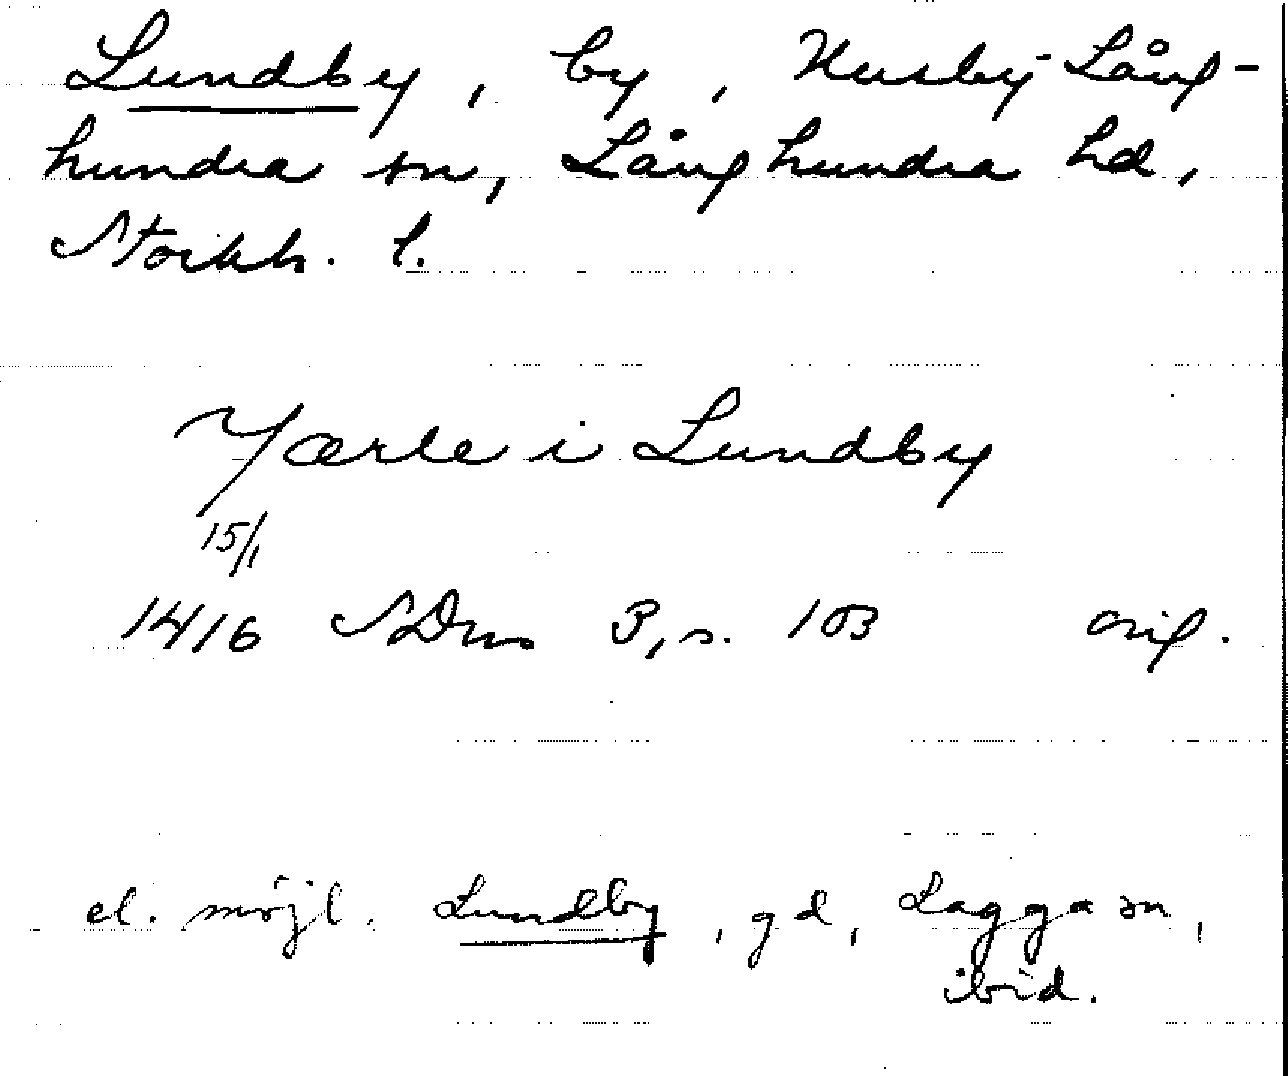 Lundby, by, Husby-Lång-
hundra sn, Långhundra hd,
Stockh. l.
Jærle i Lundby
15/1
1416 SDns 3, s. 103 orig.
el. möjl. Lundby, gd, Lagga sn,
ibid.